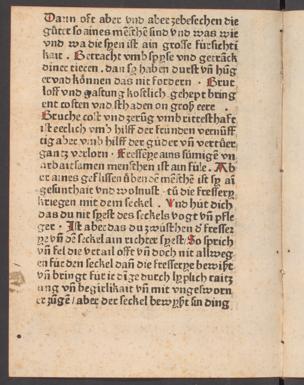 Darin oft aber vnd aber zebesechen die
gůter so aines menschē sind vnd was wie
vnd wa die syen ist ain grosse fursichti
kait. Betracht vmb spyse vnd getrāck
diner tieren. dan sy haben durst vñ hūg
er vnd können das nit fordern. Brut
loff vnd gastung kostlich gehept bring
ent costen vnd schaden on groß eere.
Bruche cost vnd zerūg vmb ritterschaft
ist eerlich vmb hilff der frūnden vernūff
tig aber vmb hilff der güder vñ vertüer
gantz verlorn. Fresserye ains sūmigē vn
ardaitsamen menschen ist ain fule. Ab
er aines geflissen übendē menschē ist sy ain
gesunthait vnd wolnust. tü die fressery
kriegen mit dem seckel. Vnd hüt dich
das du nit syest des seckels vogt vñ pfle
ger. Ist aber das du zwüsthen ð fresser
ye vñ dē seckel ain richter syest So sprich
vñ fel die vrtail offt vñ doch nit allweg
en für den seckel dañ die fresserye bewißt
vñ bringt für ir dīge durch lyplich raitz
ung vñ begirlikait vñ mit vngesworn
er zügē / aber der seckel bewyßt sin ding